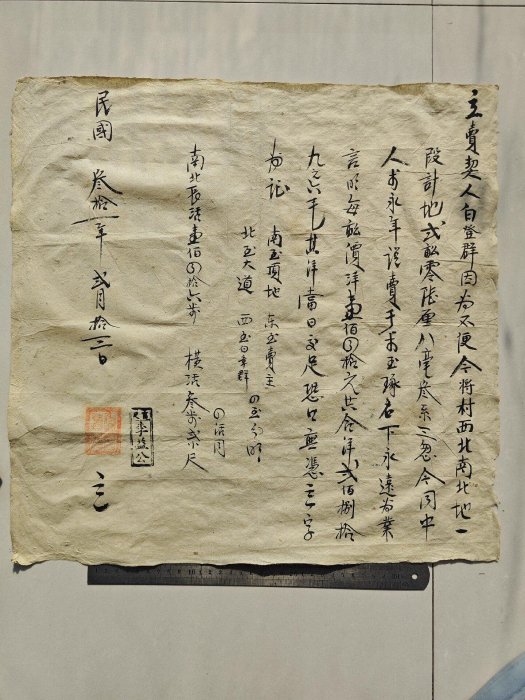 立賣契人白登群因为不便今將村西北南北地一
段計地弍畝零陆厘八毫叁系三忽今同中
人 永年説賣于 玉琢名下永遠为業
言明每畝價洋壹佰四拾元共合洋弍佰捌拾
九元六毛其洋當日交足恐口無憑立字
为证
南至 地 东至賣主
北至大道 西至白 群 四至分明
南北長活壹佰四拾六步 橫活叁步弍尺
四活同
民國 叁拾一年 弍月 拾二日 立
李益公